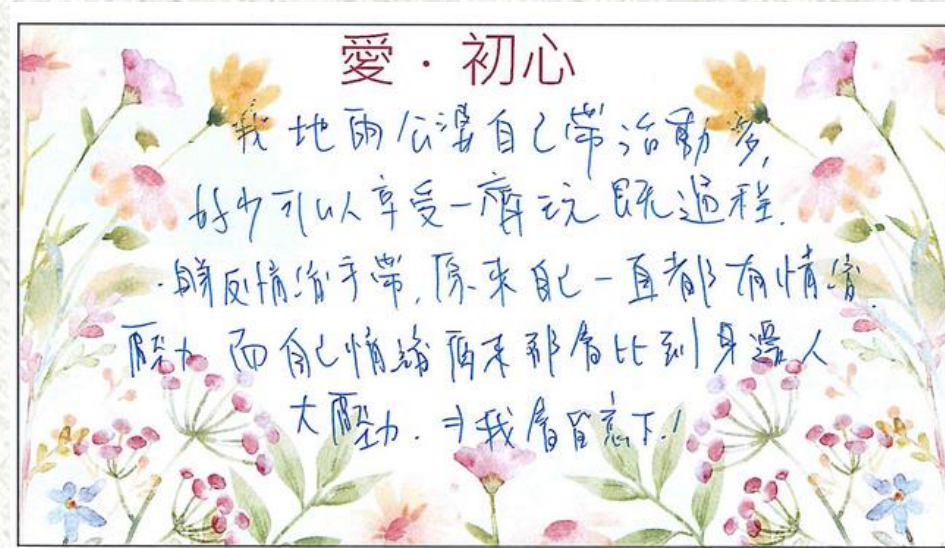 愛·初心
我地兩公婆自己帶活動多,
好少可以享受一齊玩既過程.
睇反情緒手帶,原來自己一直都有情緒
壓力 而自己情緒原來都會比到身邊人
大壓力. 我會留意下!